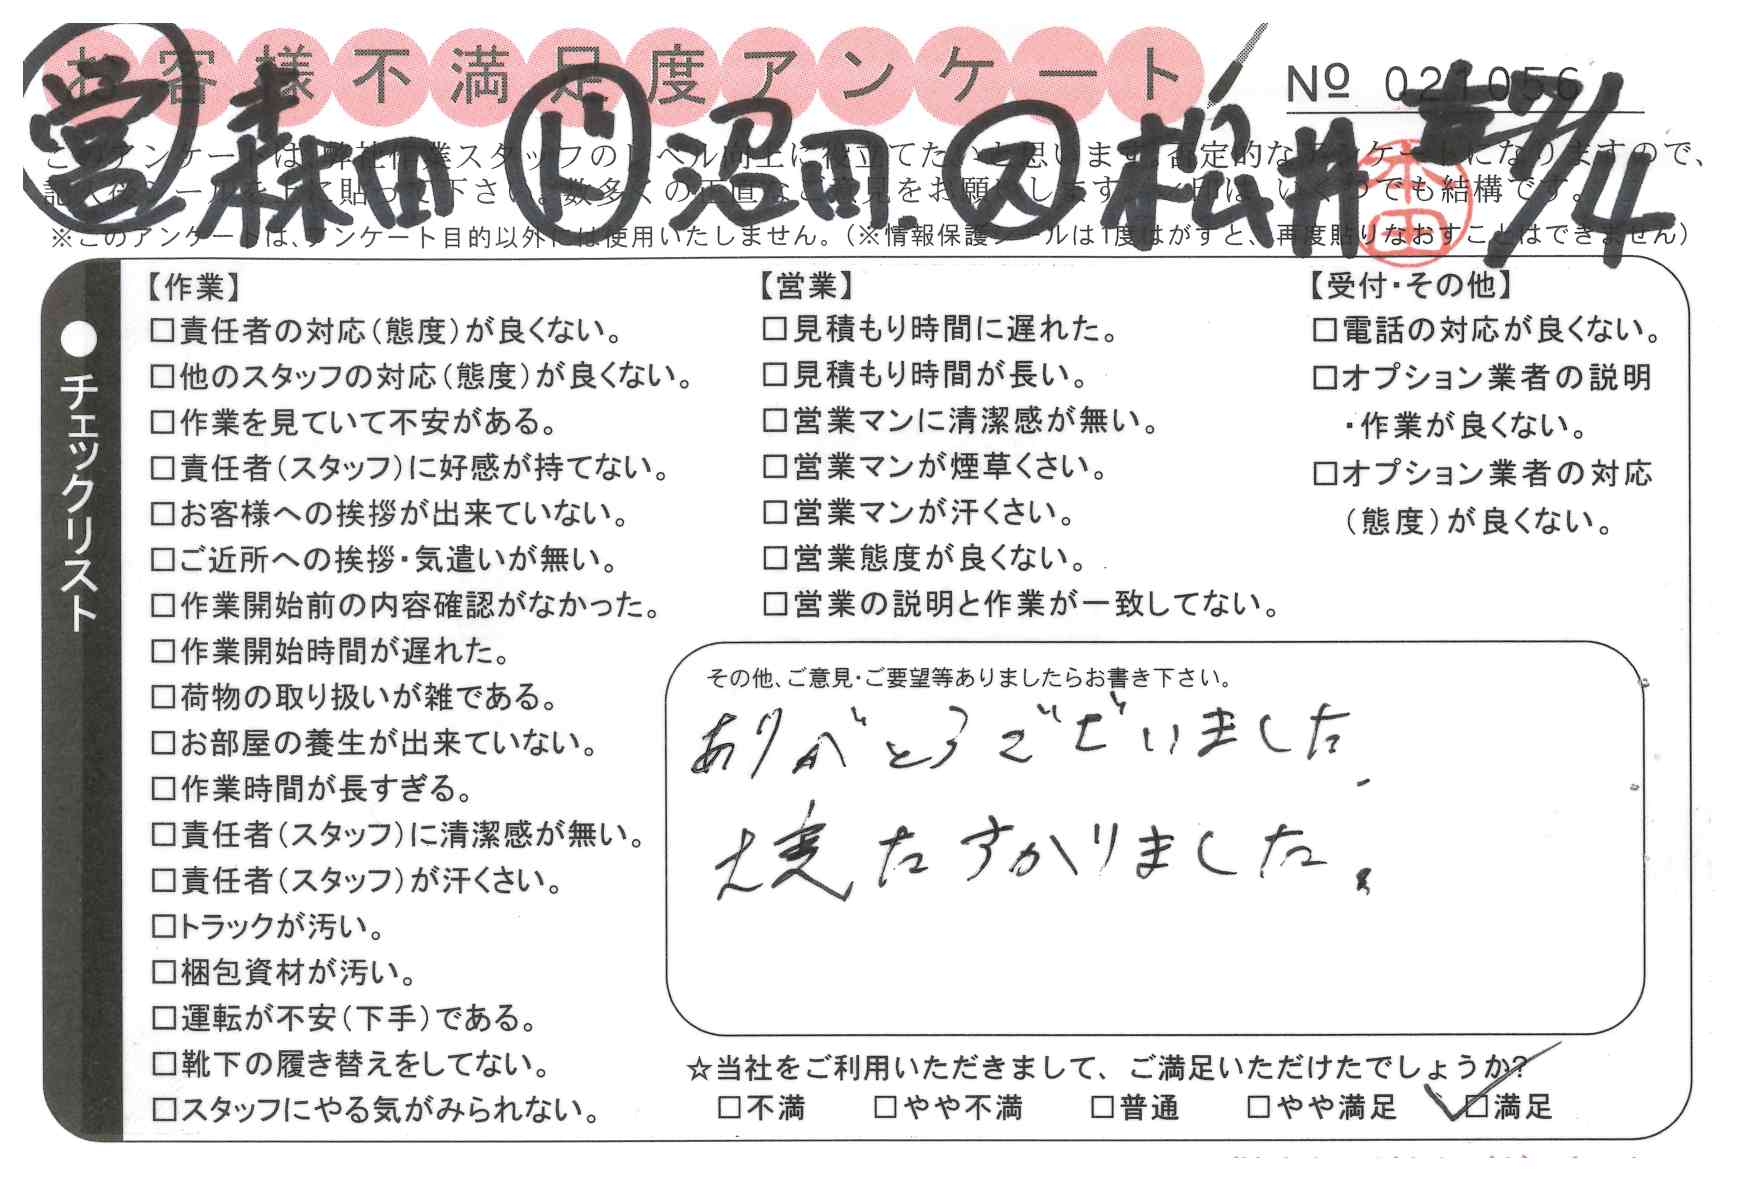 お客様不満足度アンケート
Nº 021056
営 森田 ド 沼田. ス 松井 7/4
このアンケートは、弊社作業スタッフのレベル向上に役立てたいと思います。否定的なアンケートになりますので、
記入後シールを上に貼って下さい。数多くの正直なご意見をお願いします。レ印は、いくつでも結構です。
※このアンケートは、アンケート目的以外には使用いたしません。（※情報保護シールは1度はがすと、再度貼りなおすことはできません）
●チェックリスト
【作業】
□責任者の対応（態度）が良くない。
□他のスタッフの対応（態度）が良くない。
□作業を見ていて不安がある。
□責任者（スタッフ）に好感が持てない。
□お客様への挨拶が出来ていない。
□ご近所への挨拶・気遣いが無い。
□作業開始前の内容確認がなかった。
□作業開始時間が遅れた。
□荷物の取り扱いが雑である。
□お部屋の養生が出来ていない。
□作業時間が長すぎる。
□責任者（スタッフ）に清潔感が無い。
□責任者（スタッフ）が汗くさい。
□トラックが汚い。
□梱包資材が汚い。
□運転が不安（下手）である。
□靴下の履き替えをしてない。
□スタッフにやる気がみられない。
【営業】
□見積もり時間に遅れた。
□見積もり時間が長い。
□営業マンに清潔感が無い。
□営業マンが煙草くさい。
□営業マンが汗くさい。
□営業態度が良くない。
□営業の説明と作業が一致してない。
【受付・その他】
□電話の対応が良くない。
□オプション業者の説明
・作業が良くない。
□オプション業者の対応
（態度）が良くない。
その他、ご意見・ご要望等ありましたらお書き下さい。
ありがとうございました.
大変たすかりました。
☆当社をご利用いただきまして、ご満足いただけたでしょうか?
□不満 □やや不満 □普通 □やや満足 ☑満足